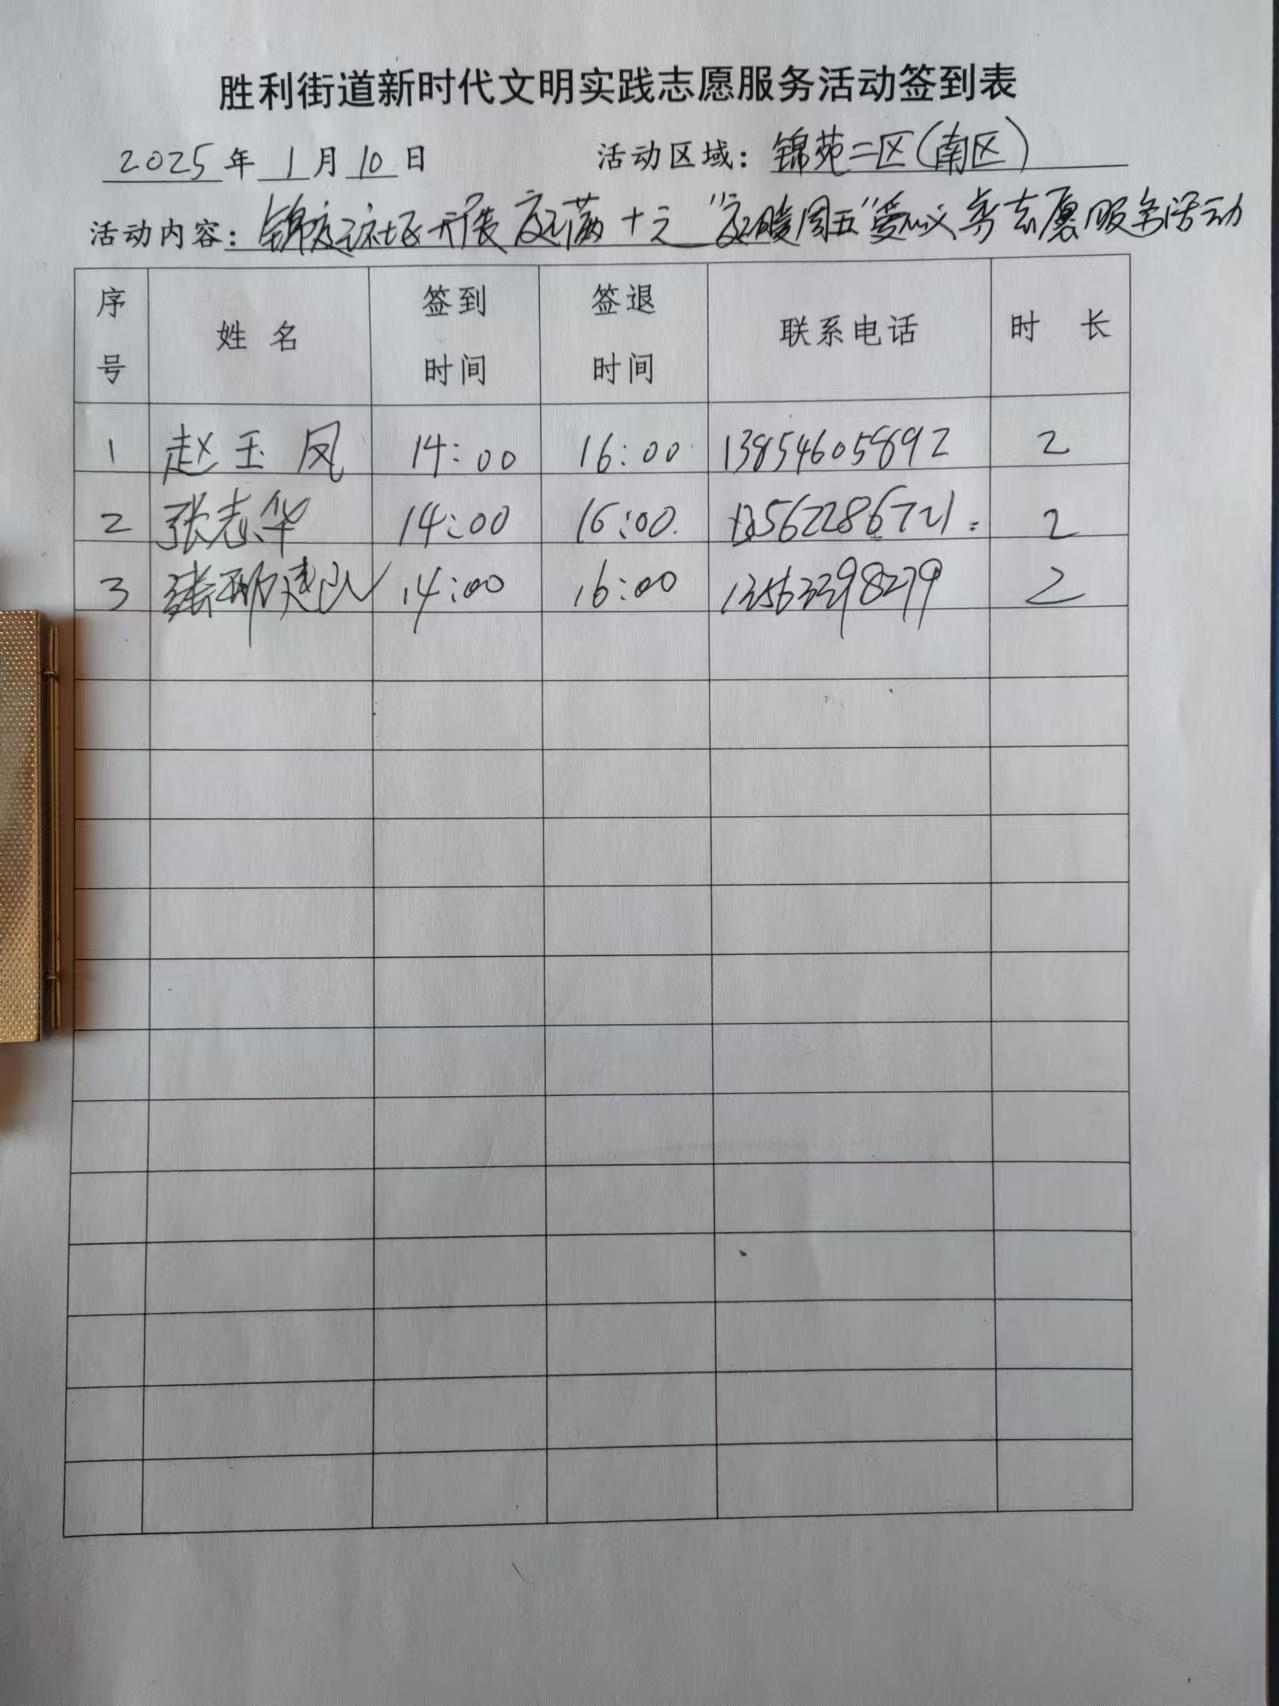 胜利街道新时代文明实践志愿服务活动签到表
2025年1月10日 活动区域：锦苑二区(南区)
活动内容：锦庭社区开展庭满十元“庭暖周五”爱心义剪志愿服务活动
序号 姓名 签到时间 签退时间 联系电话 时长
1 赵玉凤 14:00 16:00 13854605892 2
2 张志华 14:00 16:00 13562286721 2
3 14:00 16:00 13563398279 2